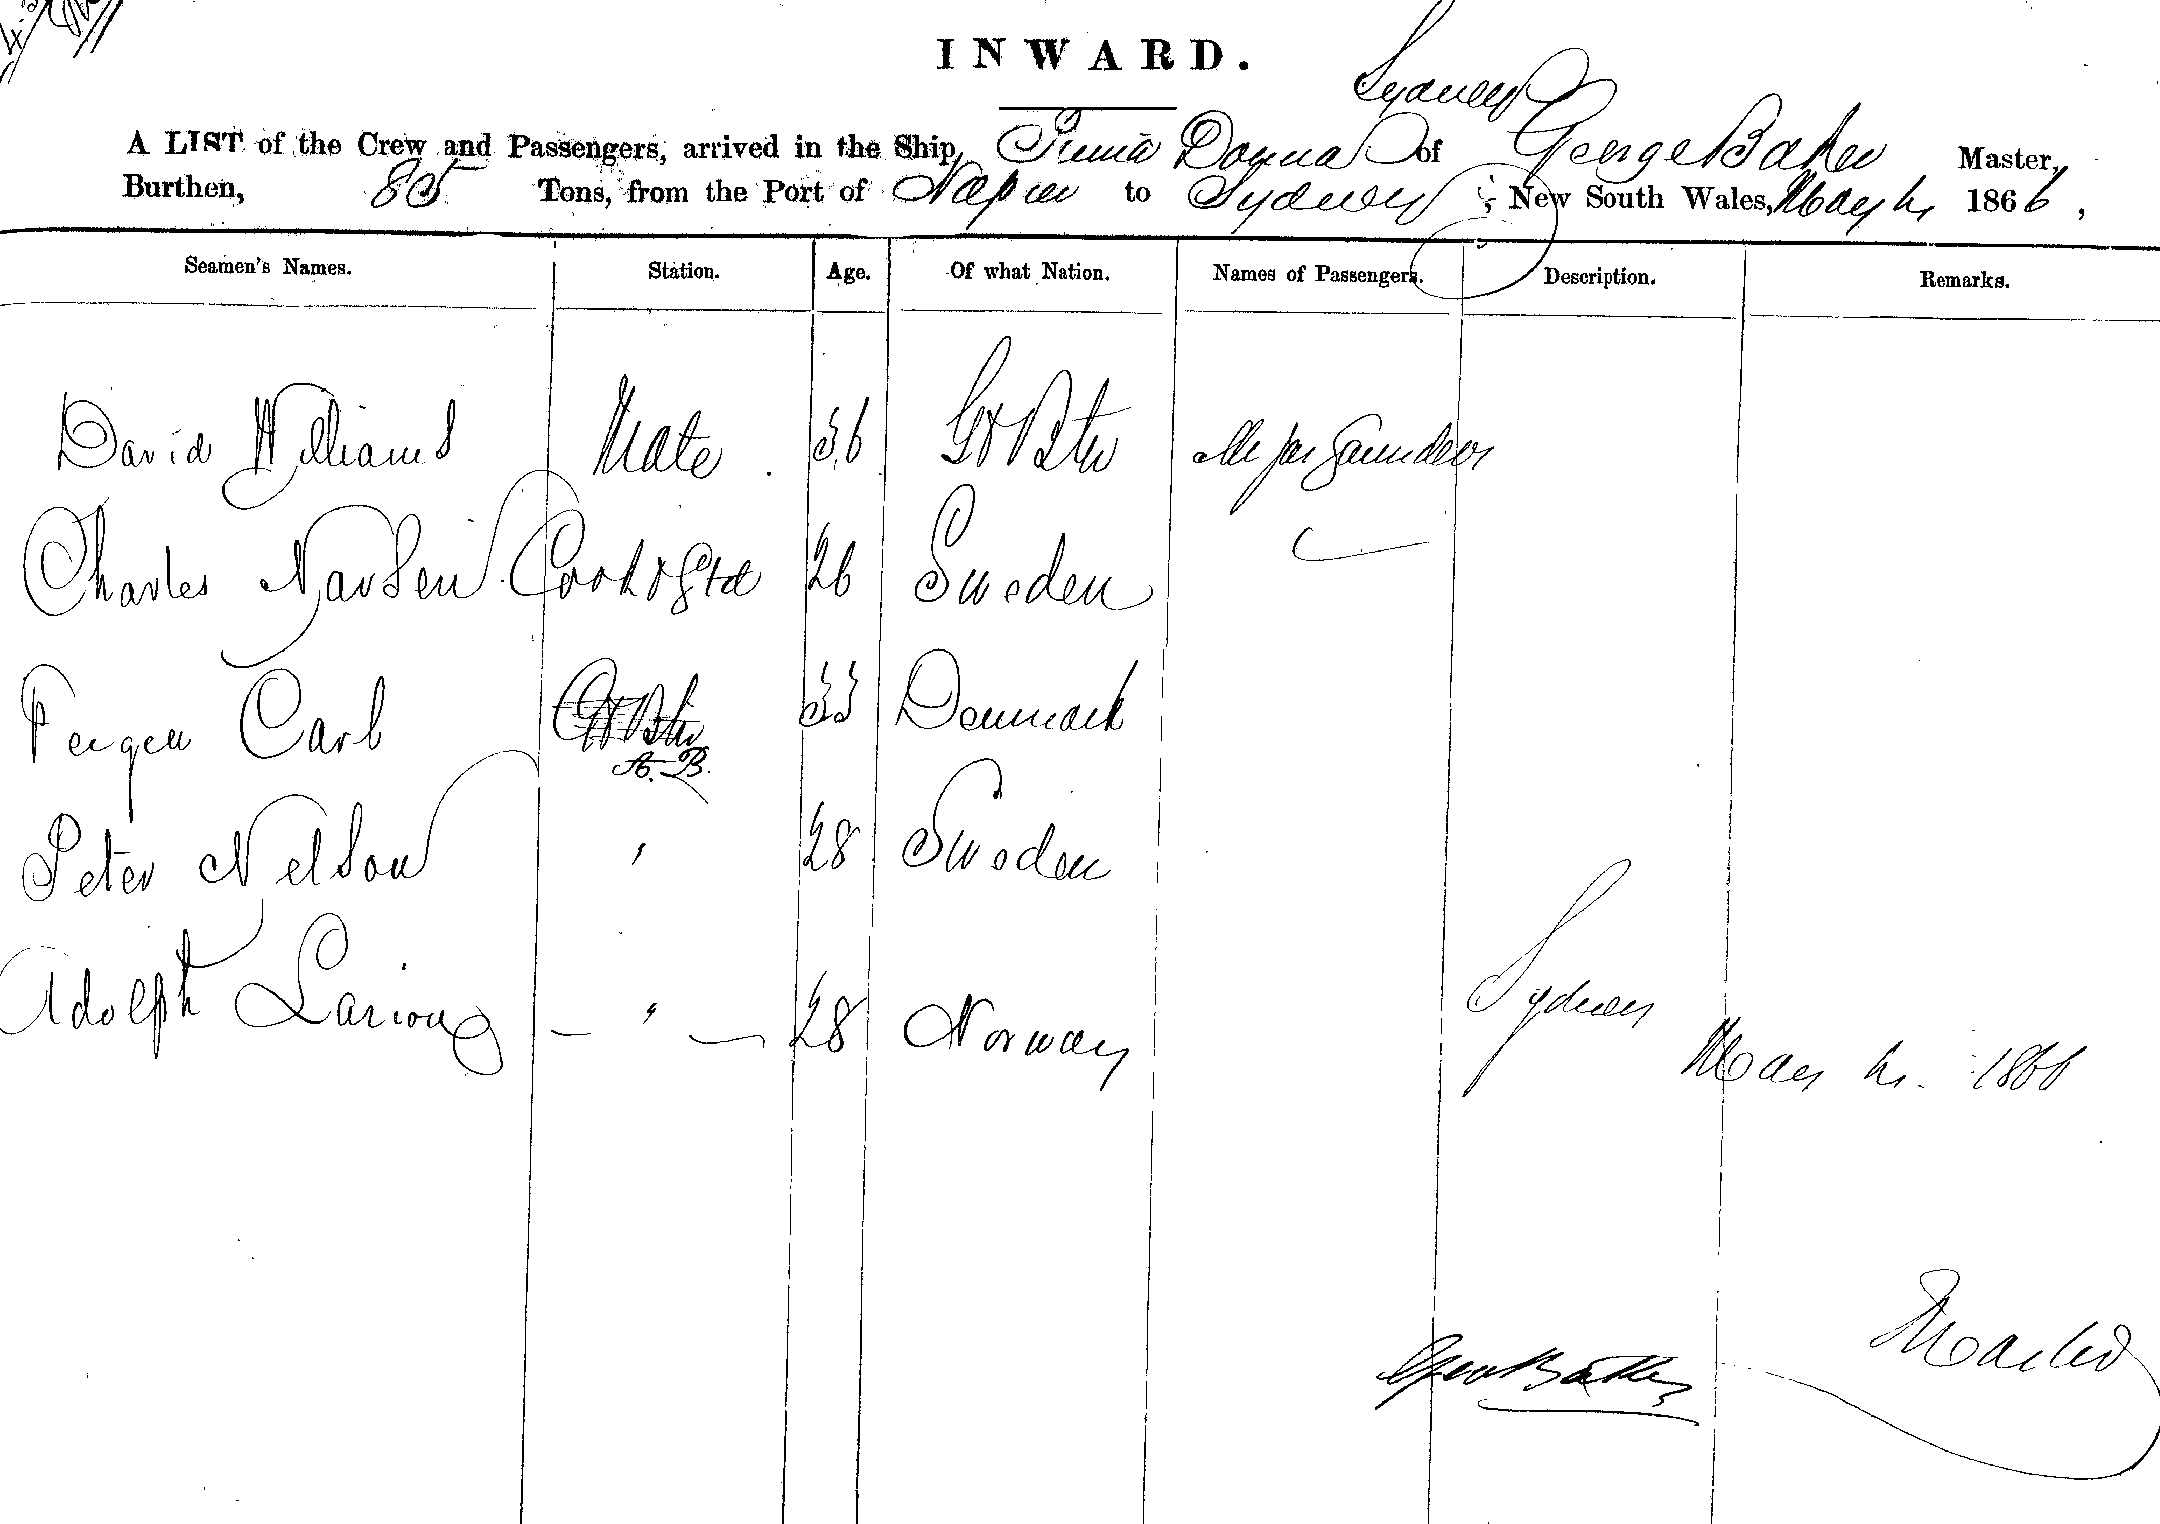 INWARD.
Sydney
A LIST of the Crew and Passengers, arrived in the Ship, Prima Donna of George Baker Master,
Burthen, 85 Tons, from the Port of Napier to Sydney, New South Wales, May 1866,
Seamen's Names. Station. Age. Of what Nation. Names of Passengers. Description. Remarks.
David Williams Mate 36 Gt Btn Saunders
Charles Cook & Std 26 Sweden
Carl A.B. 33 Denmark
Peter Nelson " 28 Sweden
Adolph — " — 28 Norway
Sydney
May 1866
Geo Baker Master